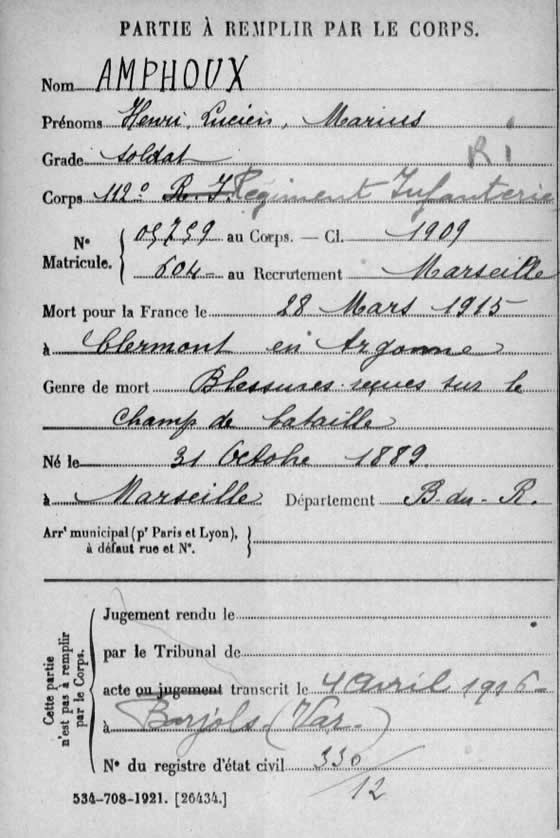 PARTIE À REMPLIR PAR LE CORPS.
Nom AMPHOUX
Prénoms Henri, Lucien, Marius
Grade soldat
R i
Corps 112e R. I. Régiment Infanterie
N° Matricule. { 05759 au Corps. — Cl. 1909
604 au Recrutement Marseille
Mort pour la France le 28 Mars 1915
à Clermont en Argonne
Genre de mort Blessures reçues sur le
champ de bataille
Né le 31 Octobre 1889.
à Marseille Département B. du. R.
Arrt municipal (pr Paris et Lyon),
à défaut rue et N°.
Cette partie n'est pas à remplir par le Corps.
Jugement rendu le
par le Tribunal de
acte ou jugement transcrit le 4 Avril 1916
à Barjols (Var.)
N° du registre d'état civil 330/12
534-708-1921. [26434.]